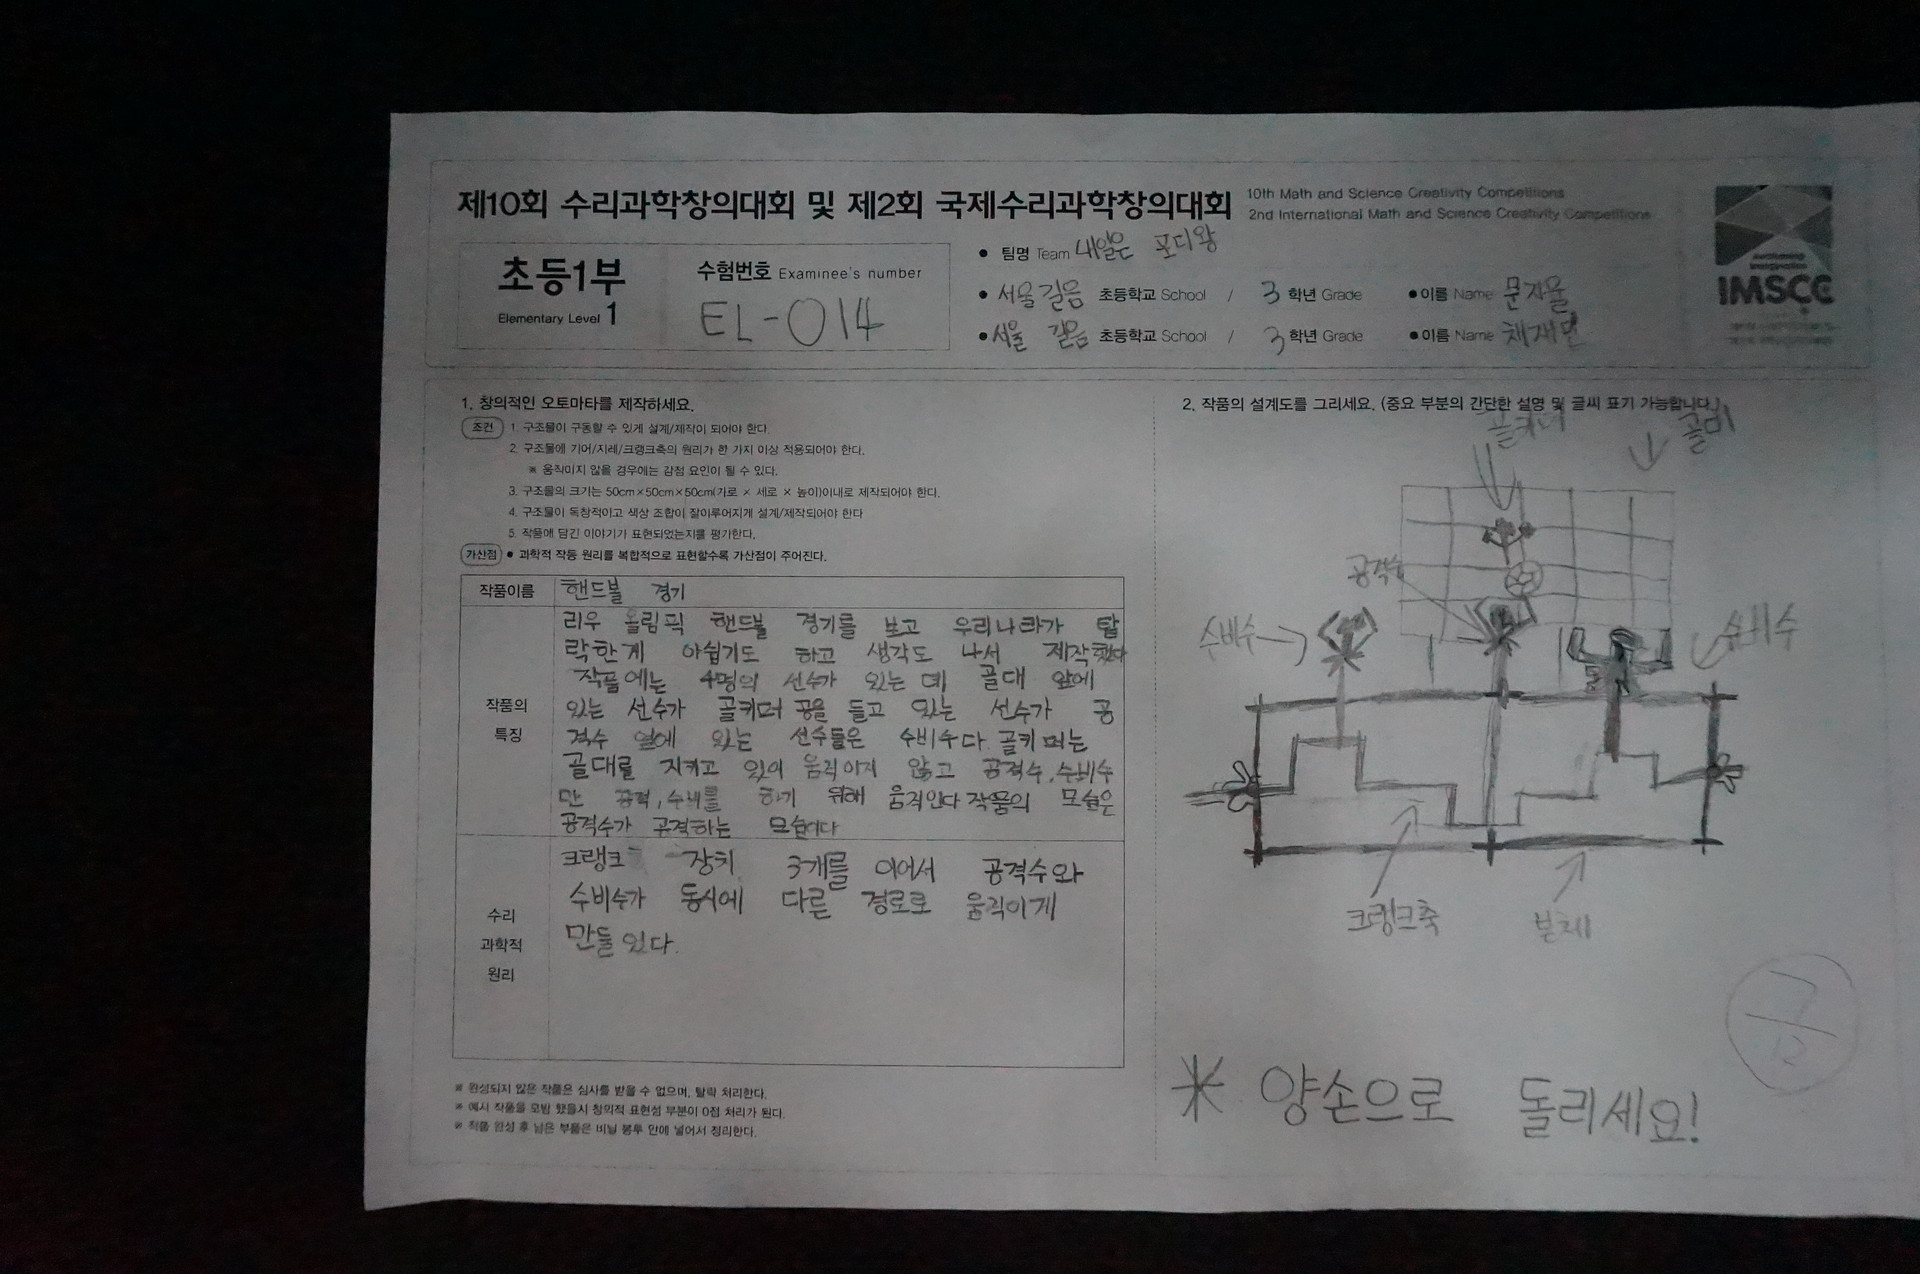 제10회 수리과학창의대회 및 제2회 국제수리과학창의대회
10th Math and Science Creativity Competitions
2nd International Math and Science Creativity Competitions
초등1부
Elementary Level 1
수험번호 Examinee's number
EL-014
● 팀명 Team 내일은 포디왕
● 서울길음 초등학교 School / 3 학년 Grade ● 이름 Name 문자울
● 서울 길음 초등학교 School / 3 학년 Grade ● 이름 Name 채재민
IMSCC
1. 창의적인 오토마타를 제작하세요.
조건 1. 구조물이 구동할 수 있게 설계/제작이 되어야 한다.
2. 구조물에 기어/지레/크랭크축의 원리가 한 가지 이상 적용되어야 한다.
※ 움직이지 않을 경우에는 감점 요인이 될 수 있다.
3. 구조물의 크기는 50cm×50cm×50cm(가로 × 세로 × 높이)이내로 제작되어야 한다.
4. 구조물이 독창적이고 색상 조합이 잘이루어지게 설계/제작되어야 한다
5. 작품에 담긴 이야기가 표현되었는지를 평가한다.
가산점 ● 과학적 작동 원리를 복합적으로 표현할수록 가산점이 주어진다.
작품이름 핸드볼 경기
작품의 특징
리우 올림픽 핸드볼 경기를 보고 우리나라가 탈
락한게 아쉽기도 하고 생각도 나서 제작했다
작품에는 4명의 선수가 있는 데 골대 앞에
있는 선수가 골키퍼 공을 들고 있는 선수가 공
격수 옆에 있는 선수들은 수비수다 골키퍼는
골대를 지키고 있어 움직이지 않고 공격수, 수비수
만 공격, 수비를 하기 위해 움직인다 작품의 모습은
공격수가 공격하는 모습이다
수리 과학적 원리
크랭크 장치 3개를 이어서 공격수와
수비수가 동시에 다른 경로로 움직이게
만들 있다.
※ 완성되지 않은 작품은 심사를 받을 수 없으며, 탈락 처리한다.
※ 예시 작품을 모방 했을시 창의적 표현성 부분이 0점 처리가 된다.
※ 작품 완성 후 남은 부품은 비닐 봉투 안에 넣어서 정리한다.
2. 작품의 설계도를 그리세요. (중요 부분의 간단한 설명 및 글씨 표기 가능합니다.)
골키퍼
골대
공격수
수비수
수비수
크랭크축
본체
※ 양손으로 돌리세요!